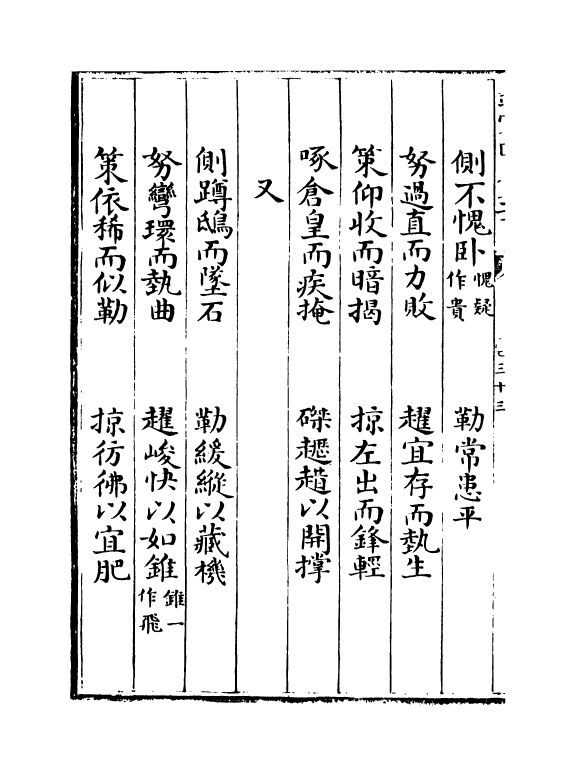 側不愧卧愧疑作貴　勒常患平
努過直而力敗　趯宜存而埶生
策仰收而暗揭　掠左出而鋒輕
啄倉皇而疾掩　磔以開撑
又
側蹲鴟而墜石　勒緩縱以藏機
努彎環而埶曲　趯峻快以如錐錐一作飛
策依稀而似勒　掠彷彿以宜肥
三十三